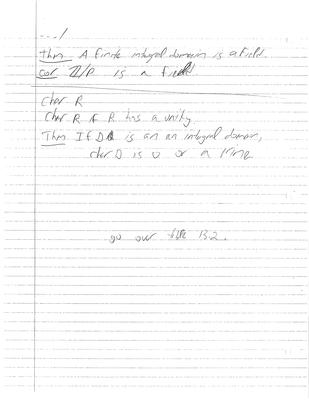 ---/
Thm A finite integral domain is a field.
Cor Z/P is a field
Char R
Char R if R has a unity
Thm If D is an an integral domain,
char D is 0 or a prime
go over table 13.2.